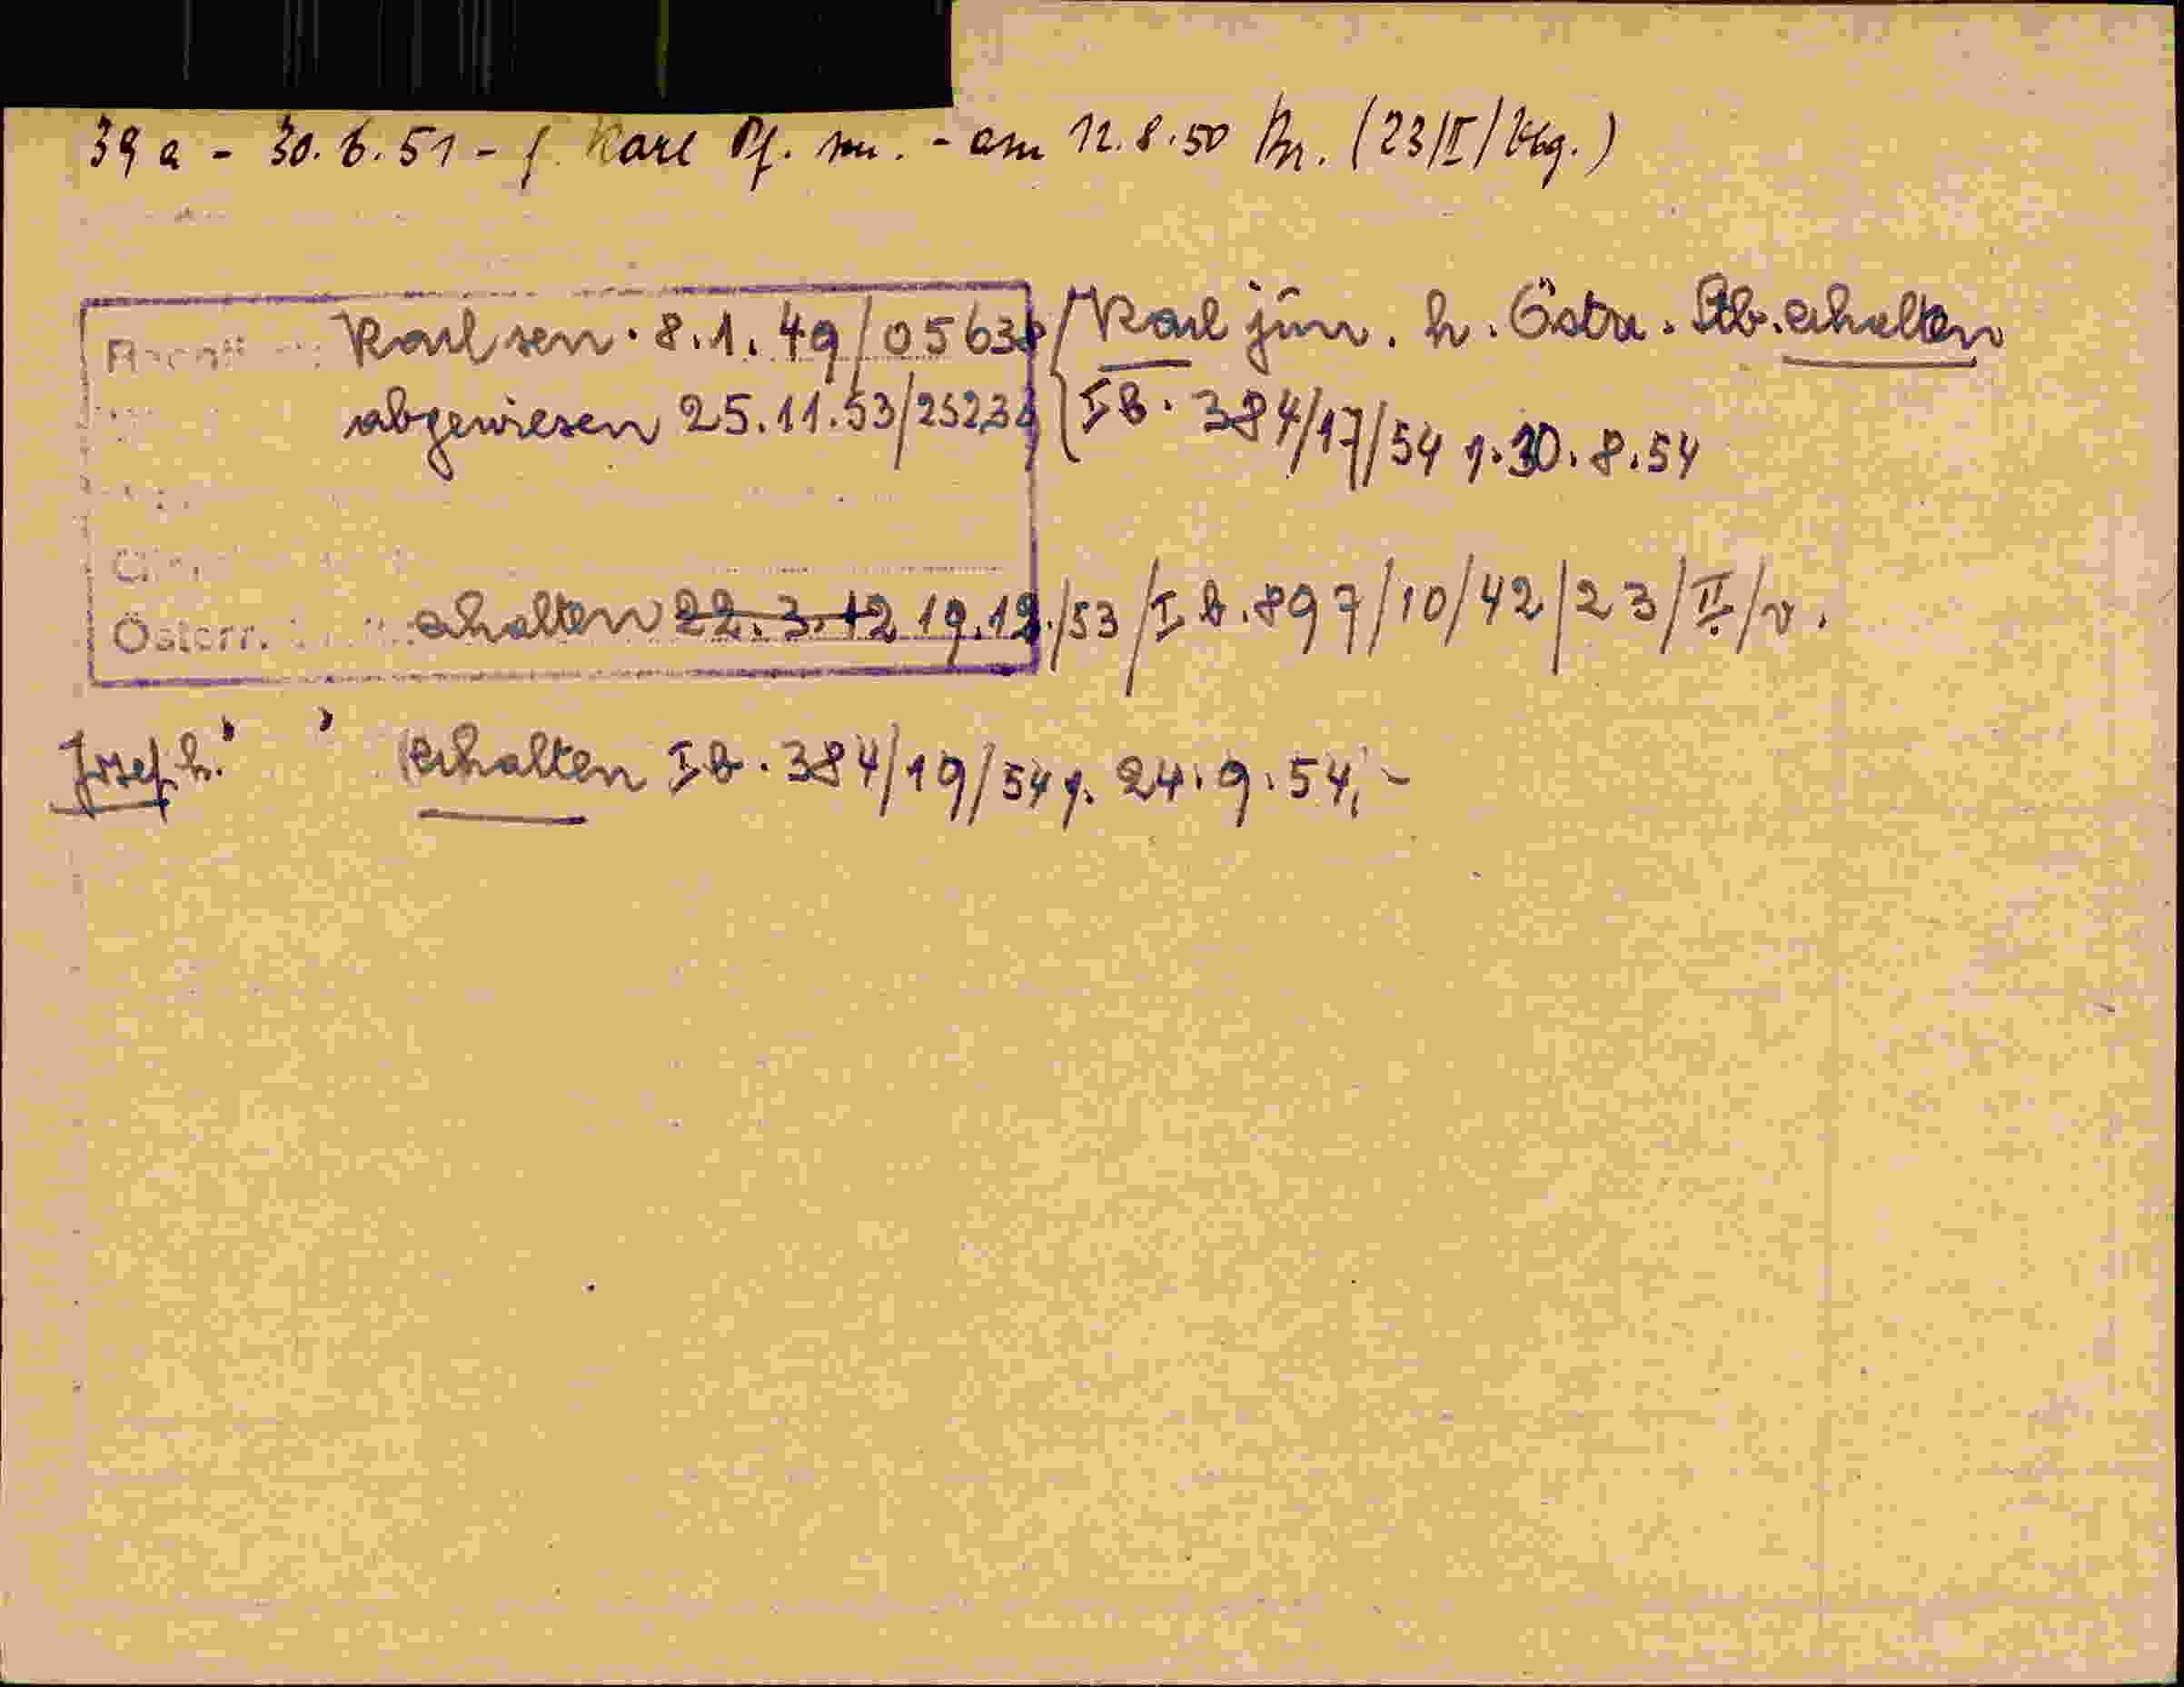 39 a - 30.6.51 - f. Karl Pf. sen. - am 12.8.50 (23/II/Hbg.)
Karl sen. 8.1.49/05638 Karl jun. h. Östr. Stb. erhalten
abgewiesen 25.11.53/25234 IB. 384/17/54 v. 30.8.54
Österr. erhalten 22.3.12 19.12./53/I B. 897/10/42/23/II/v.
Josef h. " " erhalten IB. 384/19/54 v. 24.9.54,-